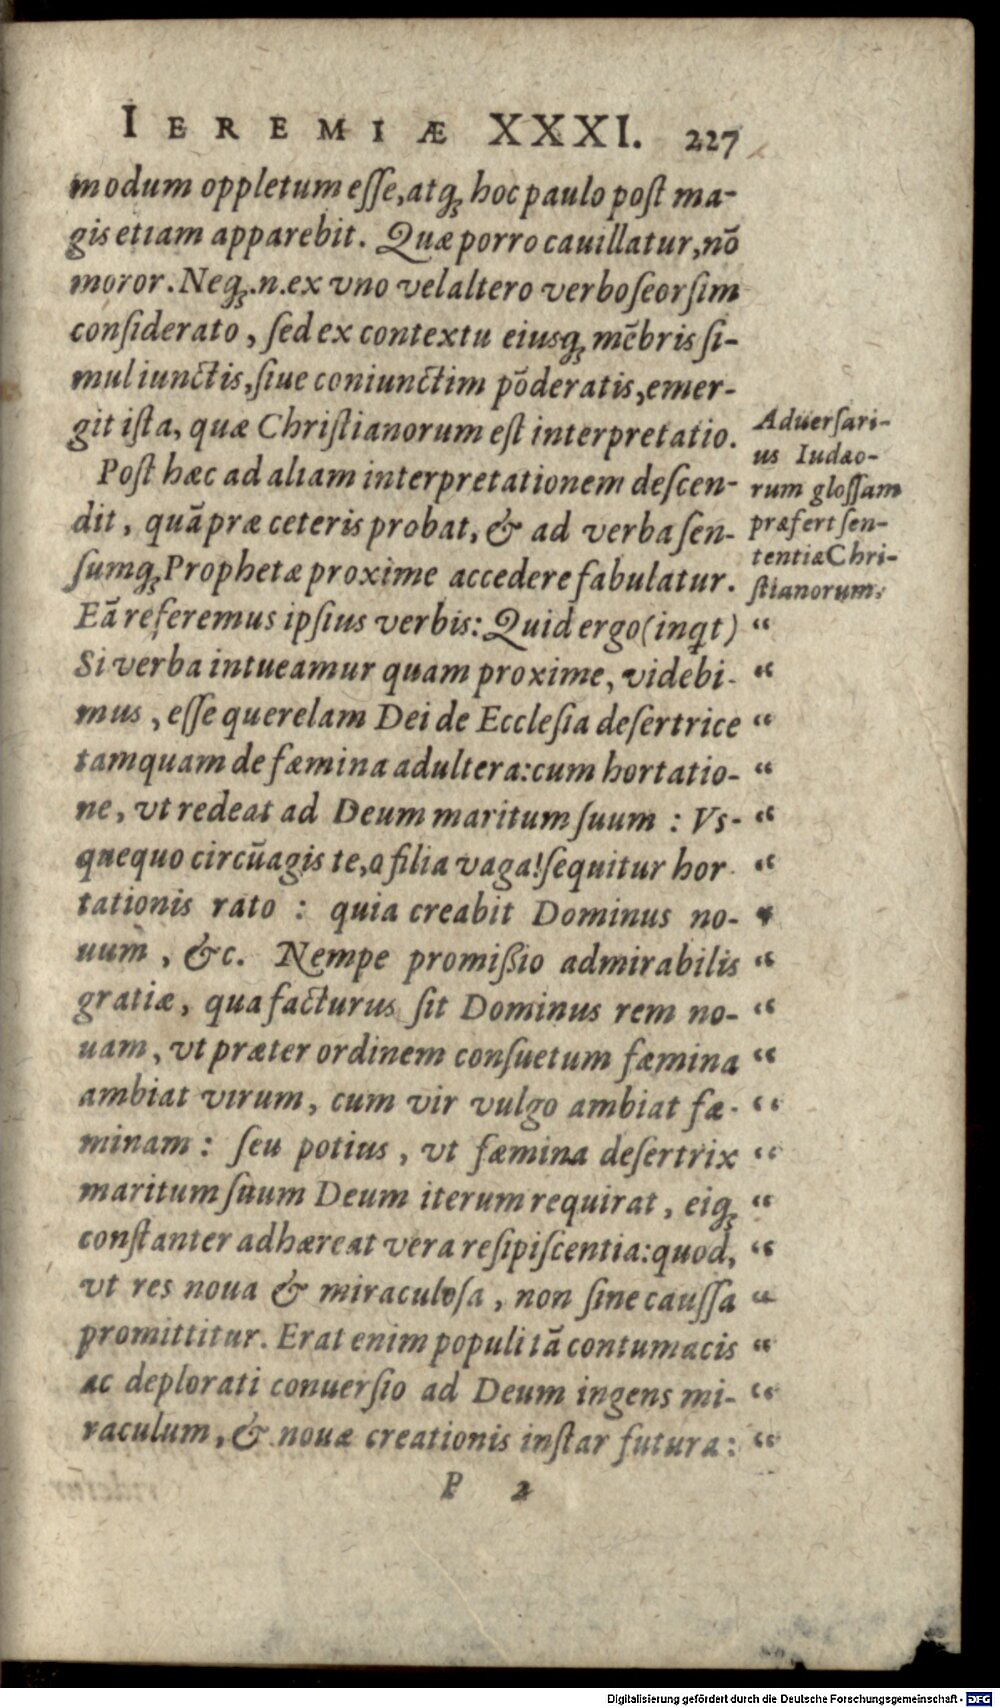 IEREMIÆ XXXI. 227
modum oppletum eſſe, atq; hoc paulo poſt ma-
gis etiam apparebit. Quæ porro cauillatur, nō
moror. Neq;.n. ex vno vel altero verbo ſeorſim
conſiderato, ſed ex contextu eiusq; mēbris ſi-
mul iunctis, ſiue coniunctim pōderatis, emer-
git iſta, quæ Chriſtianorum eſt interpretatio.
Poſt hæc ad aliam interpretationem deſcen-
dit, quā præ ceteris probat, & ad verba ſen-
ſumq; Prophetæ proxime accedere fabulatur.
Eā referemus ipſius verbis: Quid ergo (inqt) “
Si verba intueamur quam proxime, videbi- “
mus, eſſe querelam Dei de Eccleſia deſertrice “
tamquam de fæmina adultera: cum hortatio- “
ne, vt redeat ad Deum maritum ſuum: Vs- “
quequo circūagis te, o filia vaga! ſequitur hor- “
tationis rato: quia creabit Dominus no- “
uum, &c. Nempe promißio admirabilis “
gratiæ, qua facturus ſit Dominus rem no- “
uam, vt præter ordinem conſuetum fæmina “
ambiat virum, cum vir vulgo ambiat fæ- “
minam: ſeu potius, vt fæmina deſertrix “
maritum ſuum Deum iterum requirat, eiq; “
conſtanter adhæreat vera reſipiſcentia: quod, “
vt res noua & miraculoſa, non ſine cauſſa “
promittitur. Erat enim populi tā contumacis “
ac deplorati conuerſio ad Deum ingens mi- “
raculum, & nouæ creationis inſtar futura: “
P 2
Aduerſari-
us Iudæo-
rum gloſſam
præfert ſen-
tentiæ Chri-
ſtianorum.
Digitalisierung gefördert durch die Deutsche Forschungsgemeinschaft - DFG